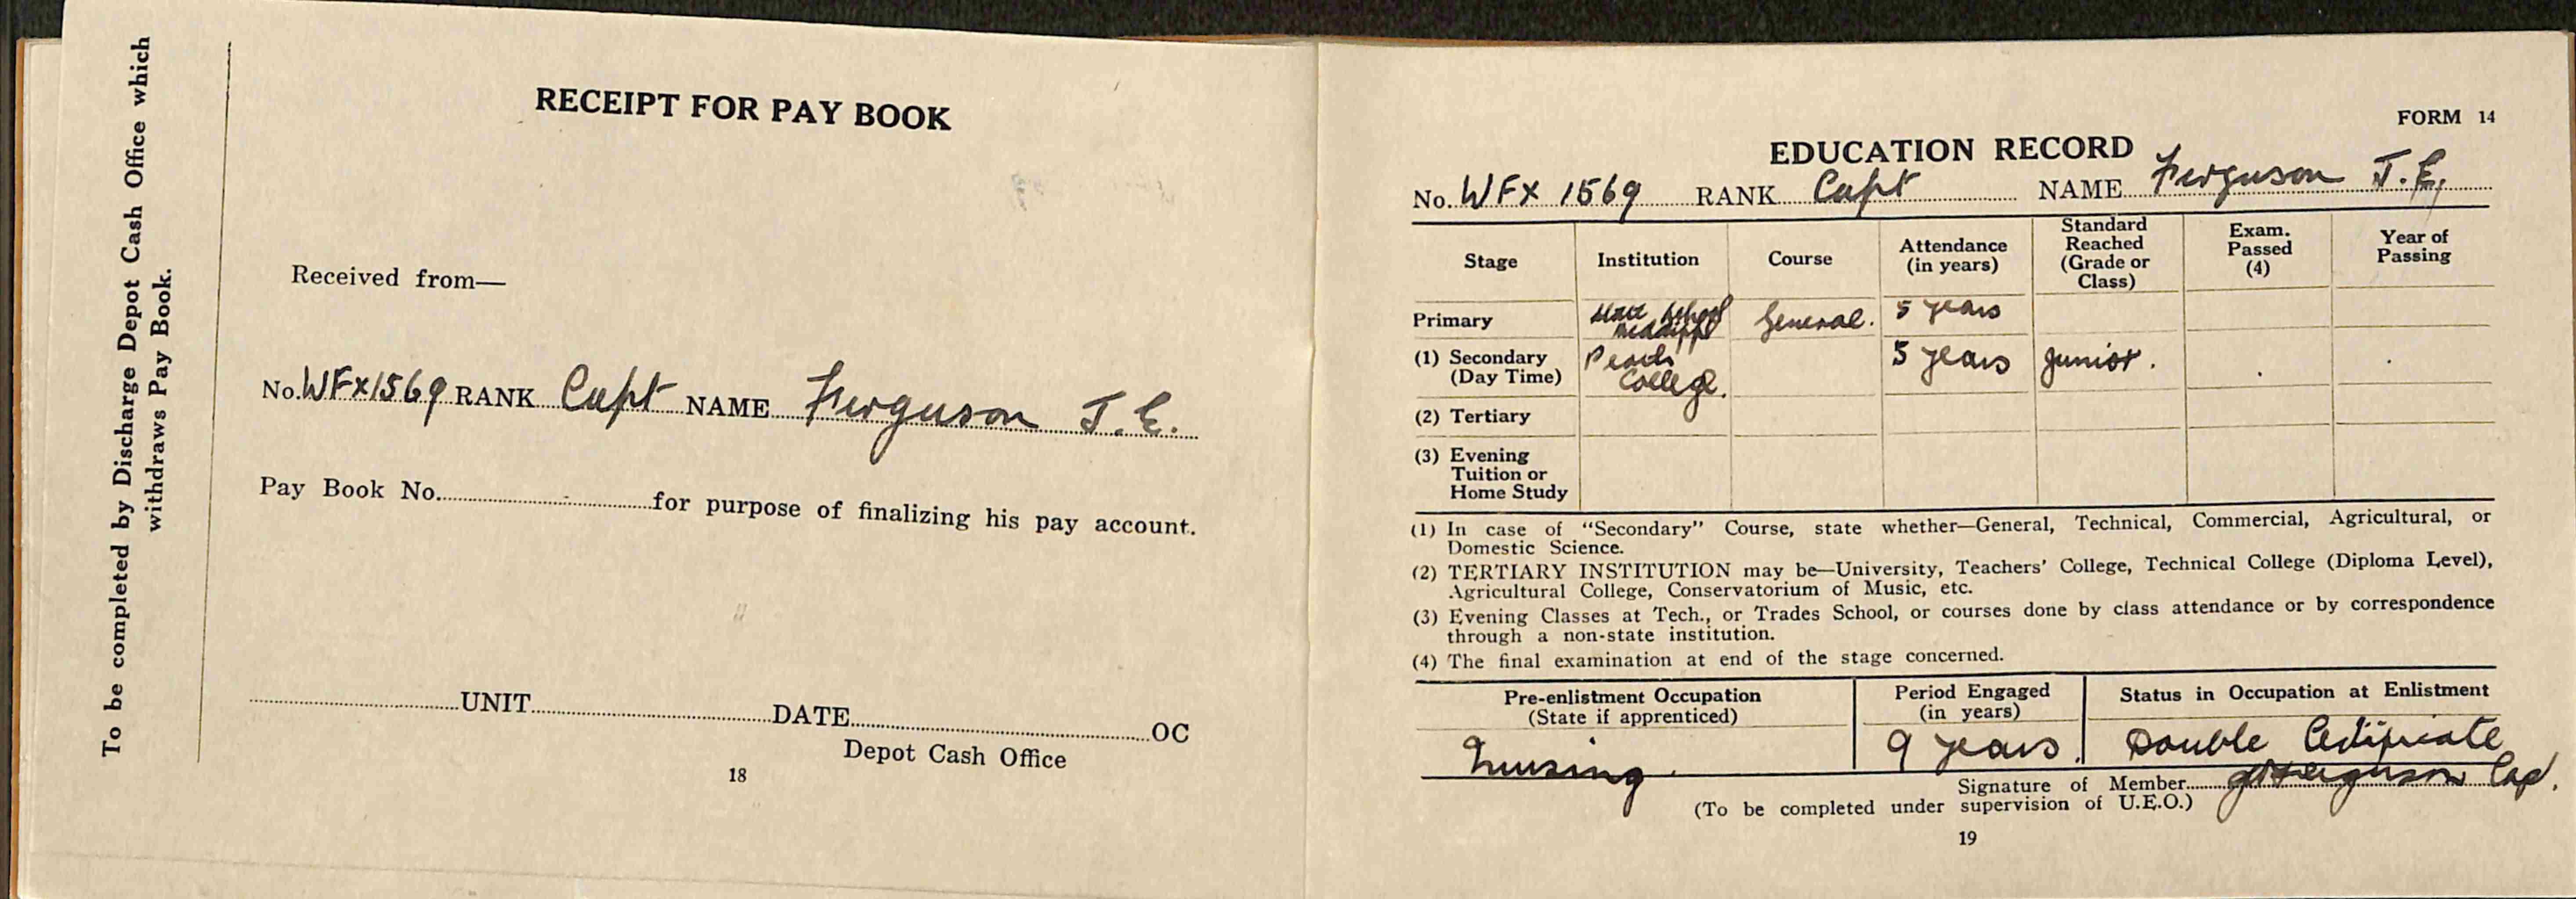 To be completed by Discharge Depot Cash Office which
withdraws Pay Book.
RECEIPT FOR PAY BOOK
Received from—
No. WFX1569 RANK Capt NAME Ferguson J. E.
Pay Book No. for purpose of finalizing his pay account.
UNIT DATE OC
Depot Cash Office
18
FORM 14
EDUCATION RECORD
No. WFX 1569 RANK Capt NAME Ferguson J. E.
Stage Institution Course Attendance (in years) Standard Reached (Grade or Class) Exam. Passed (4) Year of Passing
Primary State School General. 5 years
(1) Secondary (Day Time) College. 5 years Junior.
(2) Tertiary
(3) Evening Tuition or Home Study
(1) In case of “Secondary” Course, state whether—General, Technical, Commercial, Agricultural, or
Domestic Science.
(2) TERTIARY INSTITUTION may be—University, Teachers' College, Technical College (Diploma Level),
Agricultural College, Conservatorium of Music, etc.
(3) Evening Classes at Tech., or Trades School, or courses done by class attendance or by correspondence
through a non-state institution.
(4) The final examination at end of the stage concerned.
Pre-enlistment Occupation (State if apprenticed) Period Engaged (in years) Status in Occupation at Enlistment
Nursing. 9 years. Double Certificate
Signature of Member JEFerguson Cap.
(To be completed under supervision of U.E.O.)
19